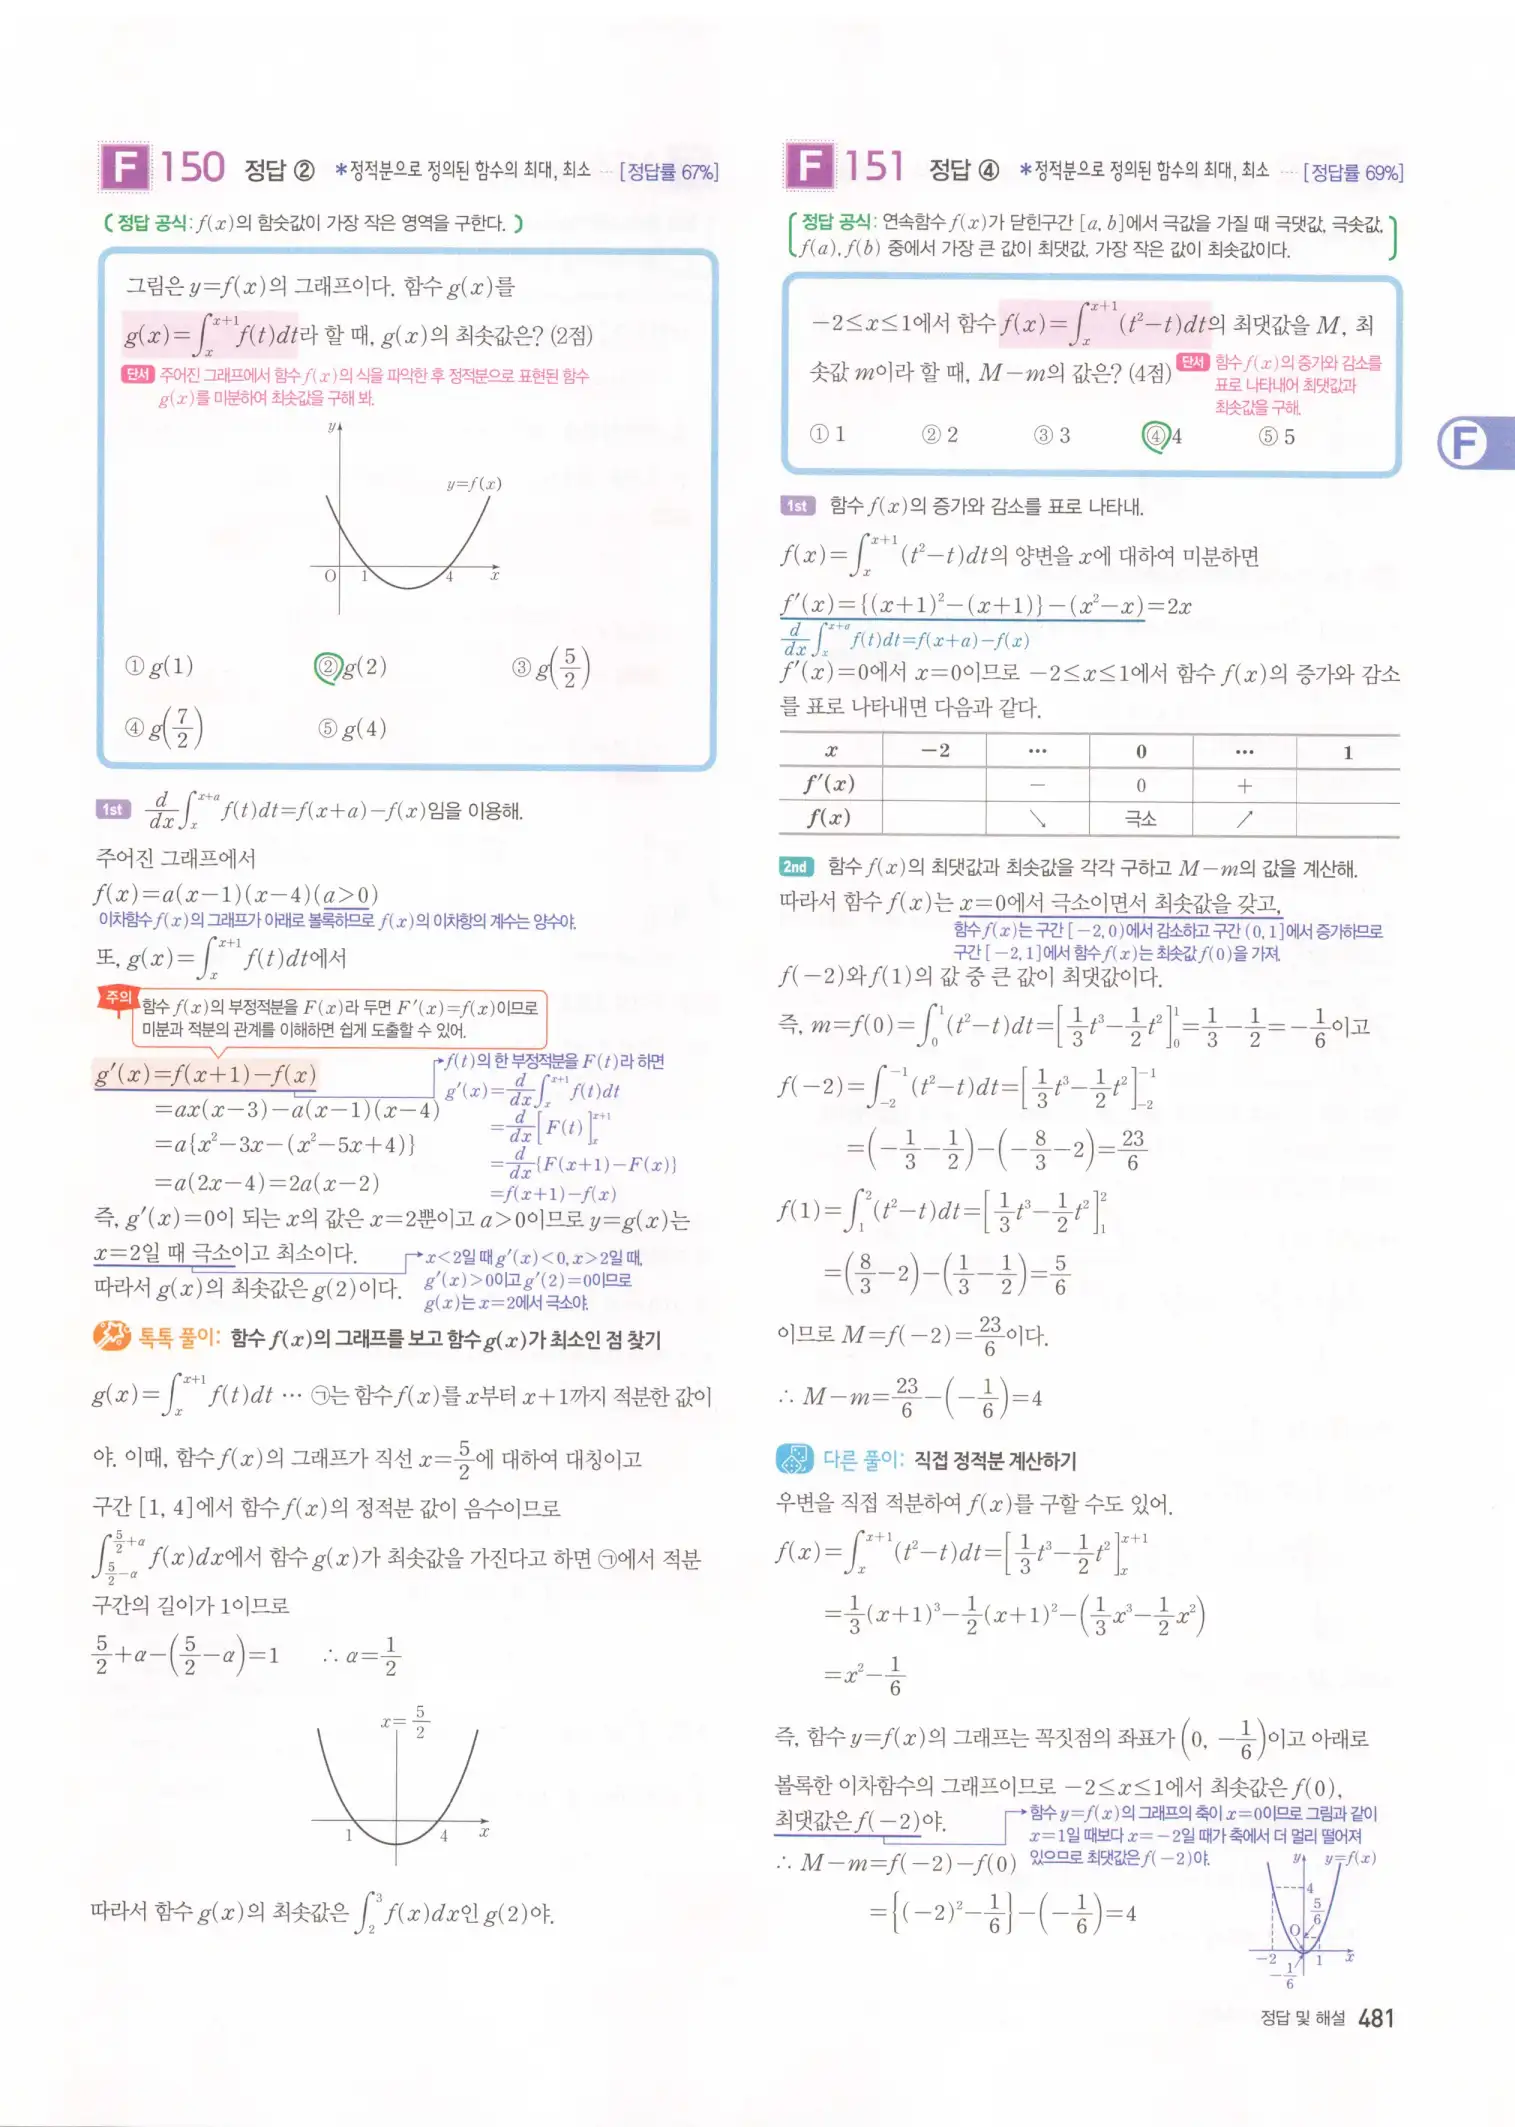 F 150 정답 ② *정적분으로 정의된 함수의 최대, 최소 … [정답률 67%]
(정답 공식: f(x)의 함숫값이 가장 작은 영역을 구한다.)
그림은 y=f(x)의 그래프이다. 함수 g(x)를
g(x)=∫_x^{x+1} f(t)dt라 할 때, g(x)의 최솟값은? (2점)
단서 주어진 그래프에서 함수 f(x)의 식을 파악한 후 정적분으로 표현된 함수
g(x)를 미분하여 최솟값을 구해 봐.
y
y=f(x)
O 1 4 x
① g(1) ② g(2) ③ g(5/2)
④ g(7/2) ⑤ g(4)
1st d/dx ∫_x^{x+a} f(t)dt=f(x+a)-f(x)임을 이용해.
주어진 그래프에서
f(x)=a(x-1)(x-4)(a>0)
이차함수 f(x)의 그래프가 아래로 볼록하므로 f(x)의 이차항의 계수는 양수야.
또, g(x)=∫_x^{x+1} f(t)dt에서
주의 함수 f(x)의 부정적분을 F(x)라 두면 F'(x)=f(x)이므로
미분과 적분의 관계를 이해하면 쉽게 도출할 수 있어.
g'(x)=f(x+1)-f(x)
=ax(x-3)-a(x-1)(x-4)
=a{x²-3x-(x²-5x+4)}
=a(2x-4)=2a(x-2)
f(t)의 한 부정적분을 F(t)라 하면
g'(x)=d/dx ∫_x^{x+1} f(t)dt
=d/dx [F(t)]_x^{x+1}
=d/dx {F(x+1)-F(x)}
=f(x+1)-f(x)
즉, g'(x)=0이 되는 x의 값은 x=2뿐이고 a>0이므로 y=g(x)는
x=2일 때 극소이고 최소이다.
따라서 g(x)의 최솟값은 g(2)이다.
x<2일 때 g'(x)<0, x>2일 때,
g'(x)>0이고 g'(2)=0이므로
g(x)는 x=2에서 극소야.
톡톡 풀이: 함수 f(x)의 그래프를 보고 함수 g(x)가 최소인 점 찾기
g(x)=∫_x^{x+1} f(t)dt … ㉠는 함수 f(x)를 x부터 x+1까지 적분한 값이
야. 이때, 함수 f(x)의 그래프가 직선 x=5/2에 대하여 대칭이고
구간 [1, 4]에서 함수 f(x)의 정적분 값이 음수이므로
∫_{5/2-α}^{5/2+α} f(x)dx에서 함수 g(x)가 최솟값을 가진다고 하면 ㉠에서 적분
구간의 길이가 1이므로
5/2+α-(5/2-α)=1 ∴ α=1/2
x=5/2
1 4 x
따라서 함수 g(x)의 최솟값은 ∫_2^3 f(x)dx인 g(2)야.
F 151 정답 ④ *정적분으로 정의된 함수의 최대, 최소 … [정답률 69%]
(정답 공식: 연속함수 f(x)가 닫힌구간 [a, b]에서 극값을 가질 때 극댓값, 극솟값,
f(a), f(b) 중에서 가장 큰 값이 최댓값, 가장 작은 값이 최솟값이다.)
-2≤x≤1에서 함수 f(x)=∫_x^{x+1} (t²-t)dt의 최댓값을 M, 최
솟값 m이라 할 때, M-m의 값은? (4점)
단서 함수 f(x)의 증가와 감소를
표로 나타내어 최댓값과
최솟값을 구해.
① 1 ② 2 ③ 3 ④ 4 ⑤ 5
1st 함수 f(x)의 증가와 감소를 표로 나타내.
f(x)=∫_x^{x+1} (t²-t)dt의 양변을 x에 대하여 미분하면
f'(x)={(x+1)²-(x+1)}-(x²-x)=2x
d/dx ∫_x^{x+a} f(t)dt=f(x+a)-f(x)
f'(x)=0에서 x=0이므로 -2≤x≤1에서 함수 f(x)의 증가와 감소
를 표로 나타내면 다음과 같다.
x -2 … 0 … 1
f'(x) - 0 +
f(x) ↘ 극소 ↗
2nd 함수 f(x)의 최댓값과 최솟값을 각각 구하고 M-m의 값을 계산해.
따라서 함수 f(x)는 x=0에서 극소이면서 최솟값을 갖고,
함수 f(x)는 구간 [-2, 0)에서 감소하고 구간 (0, 1]에서 증가하므로
구간 [-2, 1]에서 함수 f(x)는 최솟값 f(0)을 가져.
f(-2)와 f(1)의 값 중 큰 값이 최댓값이다.
즉, m=f(0)=∫_0^1 (t²-t)dt=[1/3 t³-1/2 t²]_0^1=1/3-1/2=-1/6이고
f(-2)=∫_{-2}^{-1} (t²-t)dt=[1/3 t³-1/2 t²]_{-2}^{-1}
=(-1/3-1/2)-(-8/3-2)=23/6
f(1)=∫_1^2 (t²-t)dt=[1/3 t³-1/2 t²]_1^2
=(8/3-2)-(1/3-1/2)=5/6
이므로 M=f(-2)=23/6이다.
∴ M-m=23/6-(-1/6)=4
다른 풀이: 직접 정적분 계산하기
우변을 직접 적분하여 f(x)를 구할 수도 있어.
f(x)=∫_x^{x+1} (t²-t)dt=[1/3 t³-1/2 t²]_x^{x+1}
=1/3(x+1)³-1/2(x+1)²-(1/3 x³-1/2 x²)
=x²-1/6
즉, 함수 y=f(x)의 그래프는 꼭짓점의 좌표가 (0, -1/6)이고 아래로
볼록한 이차함수의 그래프이므로 -2≤x≤1에서 최솟값은 f(0),
최댓값은 f(-2)야.
함수 y=f(x)의 그래프의 축이 x=0이므로 그림과 같이
x=1일 때보다 x=-2일 때가 축에서 더 멀리 떨어져
있으므로 최댓값은 f(-2)야.
∴ M-m=f(-2)-f(0)
={(-2)²-1/6}-(-1/6)=4
y y=f(x)
4
5/6
O
-2 1 x
-1/6
F
정답 및 해설 481